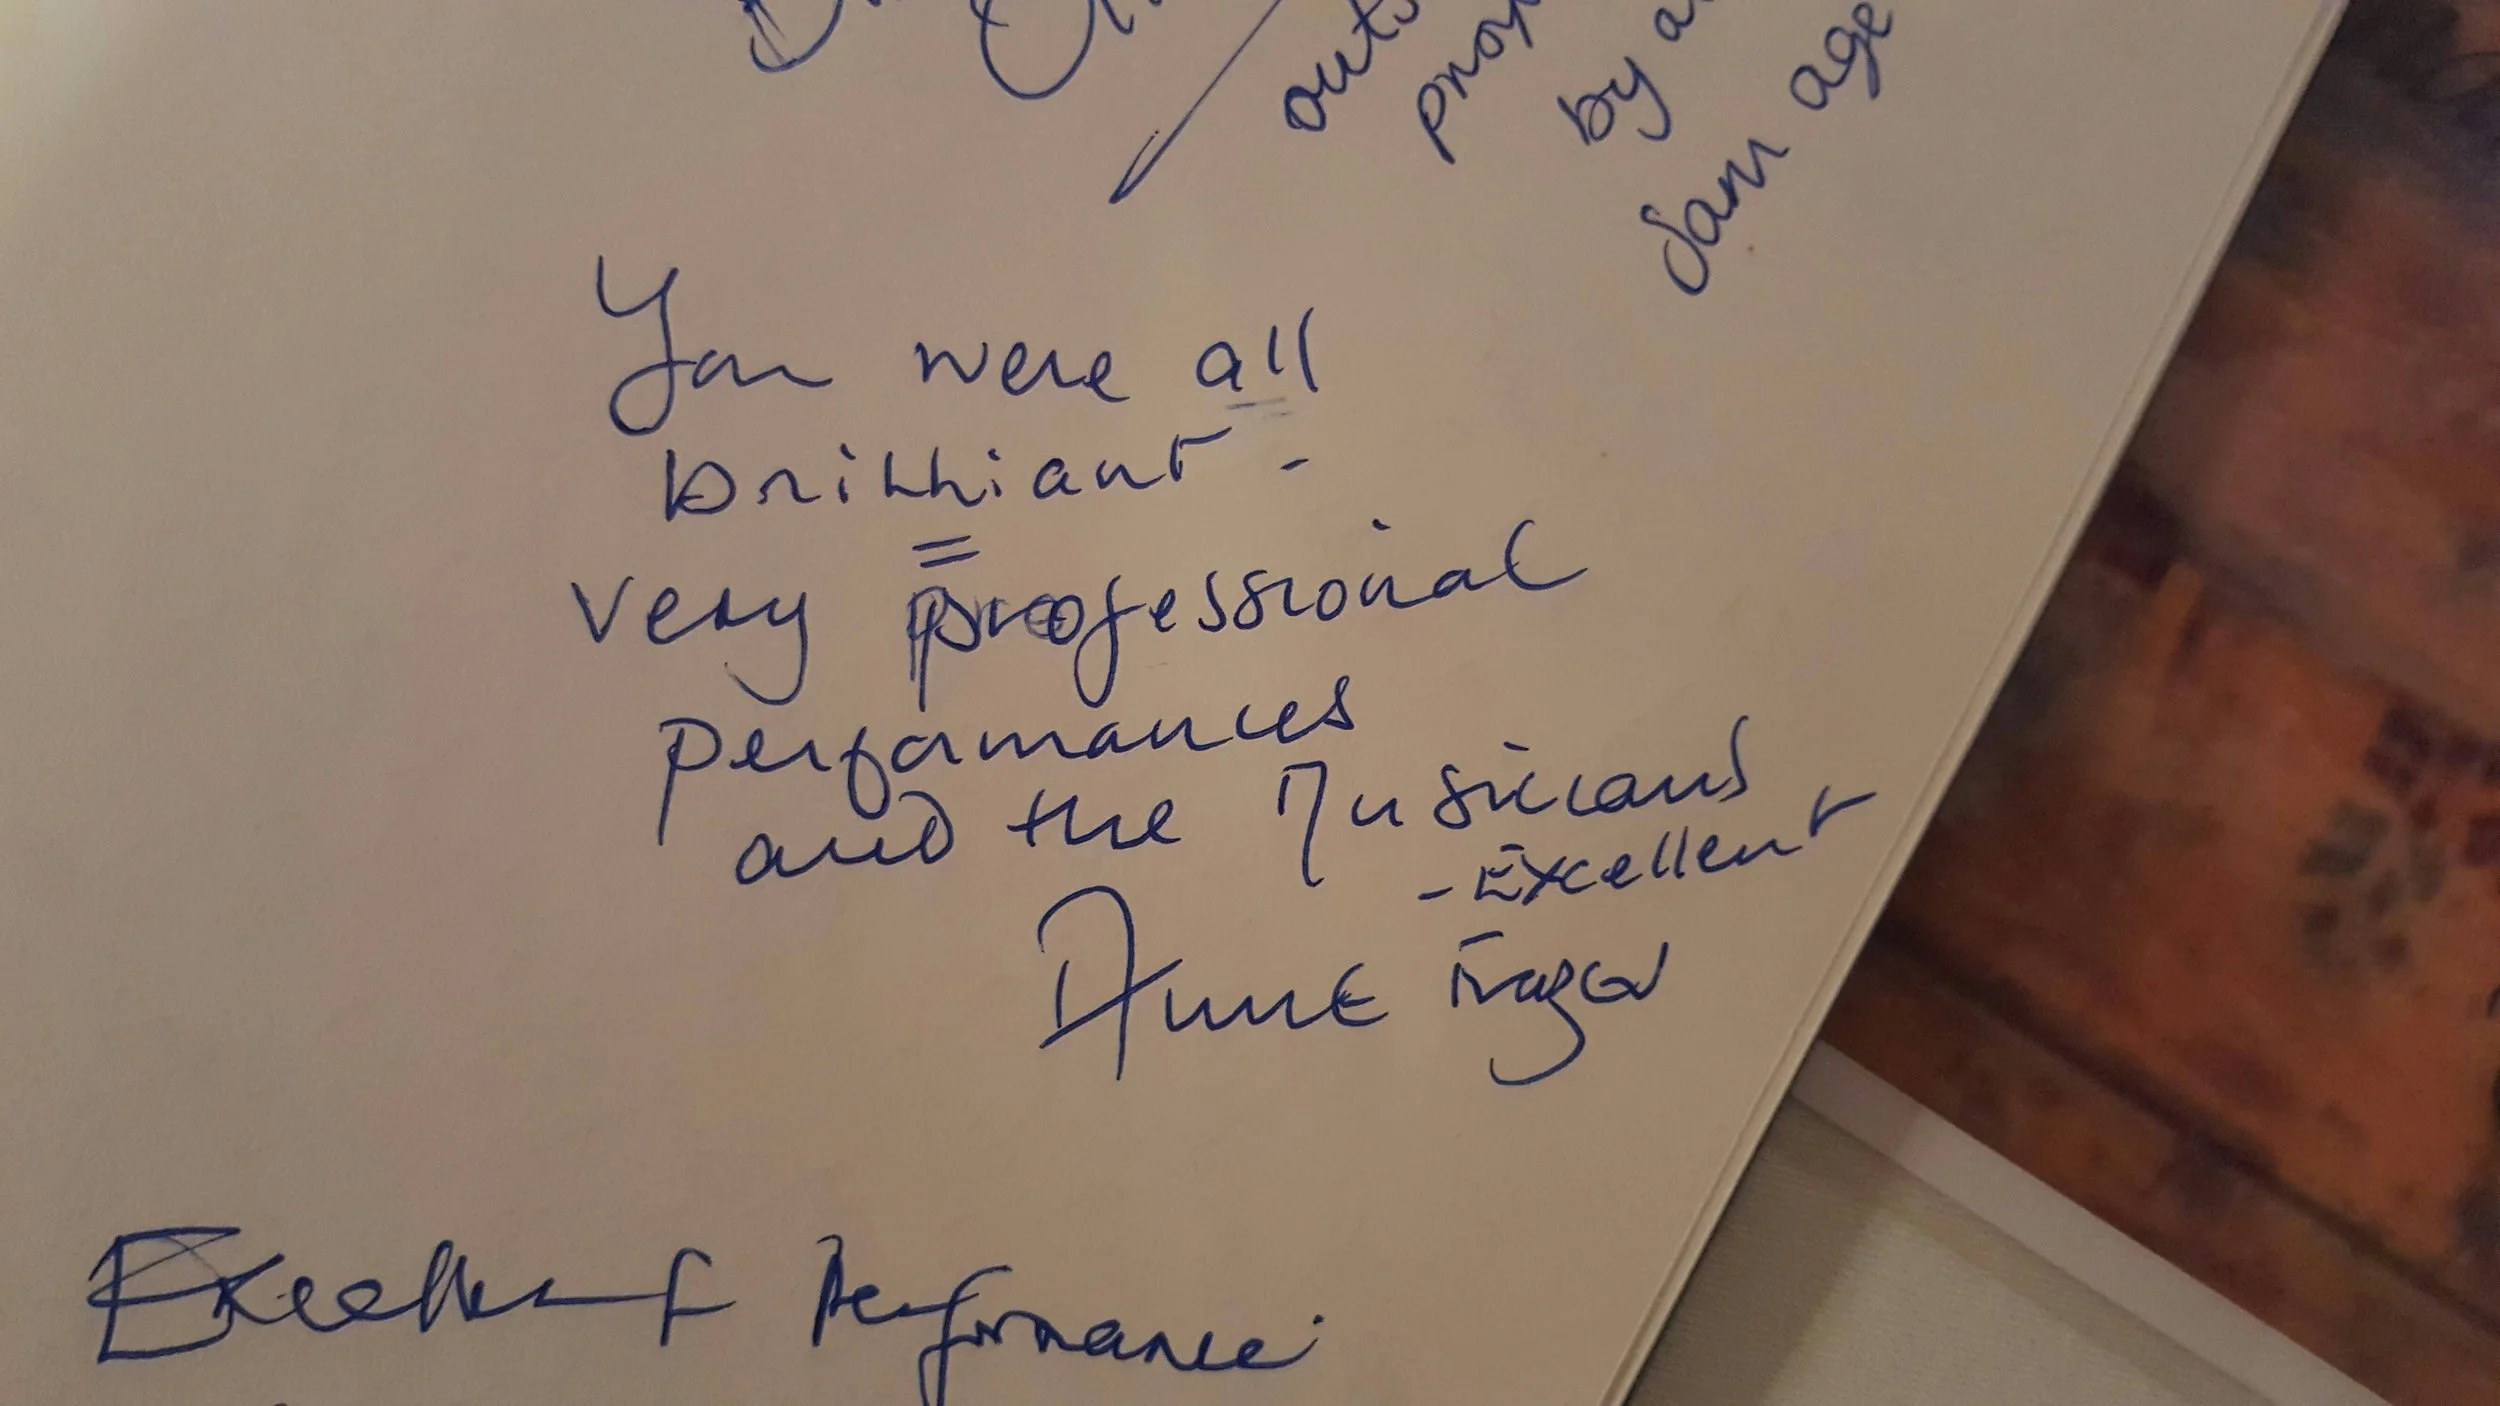 by
Sam age
You were all
brilliant -
very professional
performances
and the Musicians
- Excellent
Anne Frazer
Excellent Performance.